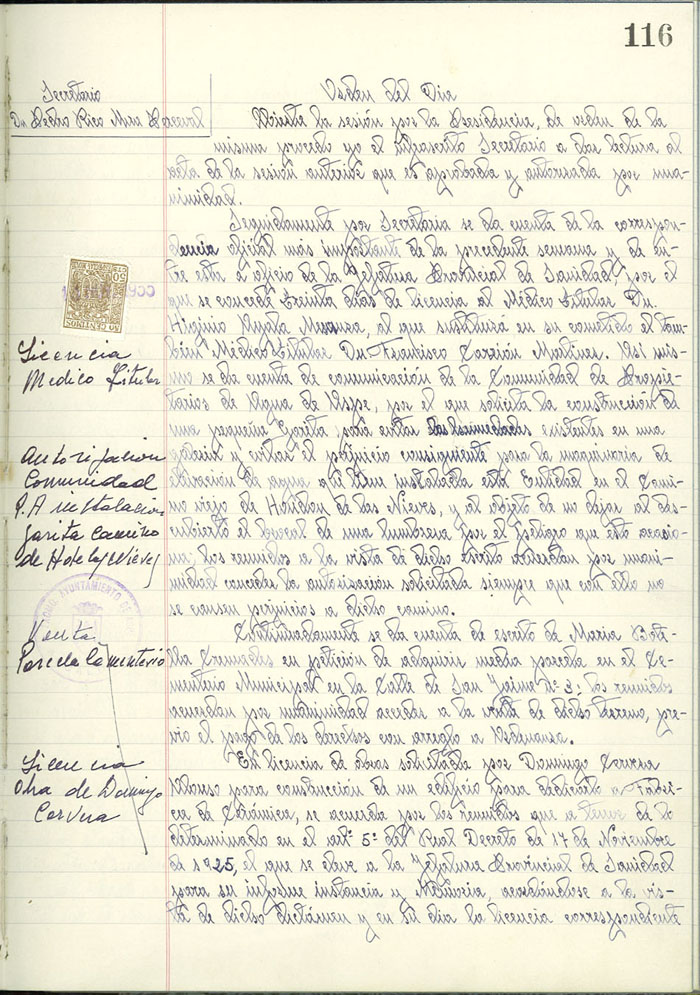 116
Secretario
Dn Pedro Rico Mira Perceval
Orden del Dia
Abierta la sesión por la Presidencia, de orden de la
misma procedo yo el infrascrito Secretario a dar lectura al
acta de la sesión anterior que es aprobada y autorizada por una-
nimidad.
Seguidamente por Secretaria se da cuenta de la correspon-
dencia oficial más importante de la precedente semana y de en-
tre esta a oficio de la Jefatura Provincial de Sanidad, por el
que se concede treinta dias de licencia al Médico Titular Dn.
Higinio Ayala al que sustituirá en su cometido el tam-
bién Médico Titular Dn. Francisco Carrión Martinez. Asi mis-
mo se da cuenta de comunicación de la Comunidad de Propie-
tarios de Agua de Aspe, por el que solicita la construcción de
una pequeña Garita, para evitar las humedades existentes en una
galeria y evitar el perjuicio consiguiente para la maquinaria de
elevación de agua que tiene instalada esta Entidad en el Cami-
no viejo de Hondon de las Nieves, y al objeto de no dejar al des-
cubierto el brocal de una lumbrera por el peligro que esto ocasio-
na; los reunidos a la vista de dicho escrito acuerdan por unani-
midad conceder la autorización solicitada siempre que con ello no
se causen perjuicios a dicho camino.
Continuadamente se da cuenta de escrito de Maria Bote-
lla Cremades en petición de adquirir media parcela en el Ce-
menterio Municipal en la Calle de San Jaime nº 3; los reunidos
acuerdan por unanimidad acceder a la venta de dicho terreno, pre-
vio el pago de los derechos con arreglo a Ordenanza.
En licencia de obras solicitada por Domingo Cervera
Alonso para construcción de un edificio para dedicarlo a Fabri-
ca de Cerámica, se acuerda por los reunidos que a tenor de lo
determinado en el artº 5º del Real Decreto de 17 de Noviembre
de 1925, el que se eleve a la Jefatura Provincial de Sanidad
para su informe instancia y Memoria, acordándose a la vis-
ta de dicho dictámen y en su dia la licencia correspondiente
50 CENTIMOS
Licencia
Medico Titular
Autorización
Comunidad
P.A instalación
garita camino
de Hº de las Nieves
AYUNTAMIENTO DE
Venta
Parcela Cementerio
Licencia
Obra de Domingo
Cervera